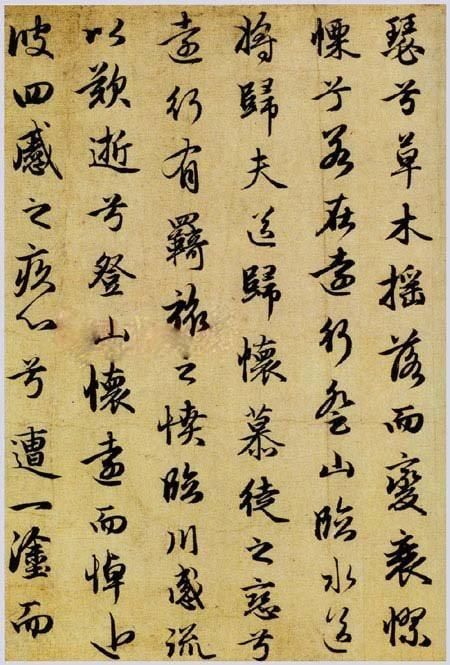 瑟兮草木摇落而變衰憭
慄兮若在遠行登山臨水送
將歸夫送歸懷慕徒之戀兮
遠行有羈旅之憤臨川感流
以歎逝兮登山懷遠而悼近
彼四慼之疚心兮遭一塗而